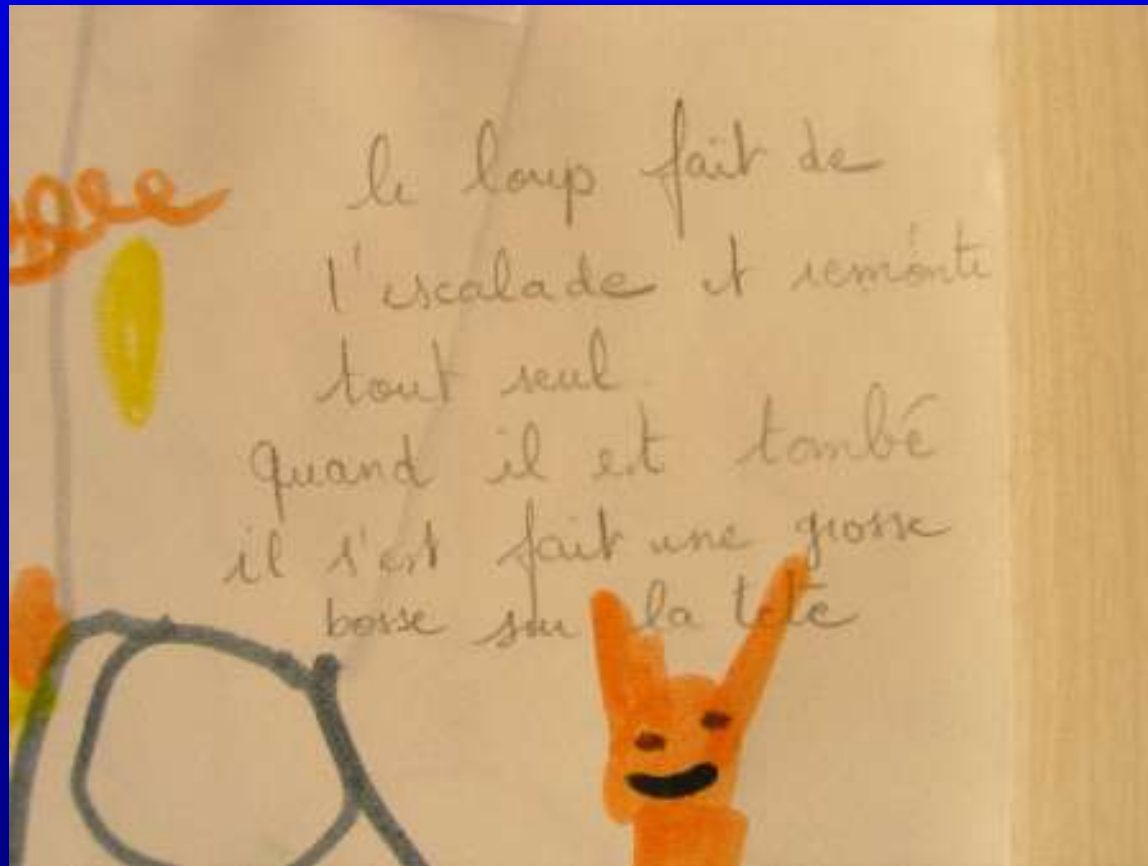 le loup fait de
l'escalade et remonte
tout seul
quand il est tombé
il s'est fait une grosse
bosse sur la tête